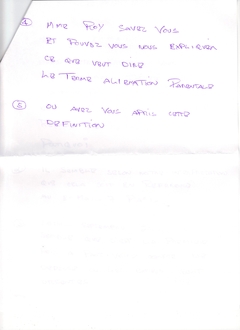 ④ MME ROY SAVEZ VOUS
ET POUVEZ VOUS NOUS EXPLIQUER
CE QUE VEUT DIRE
LE TERME ALIENATION PARENTALE
⑤ OU AVEZ VOUS APPRIS CETTE
DEFINITION